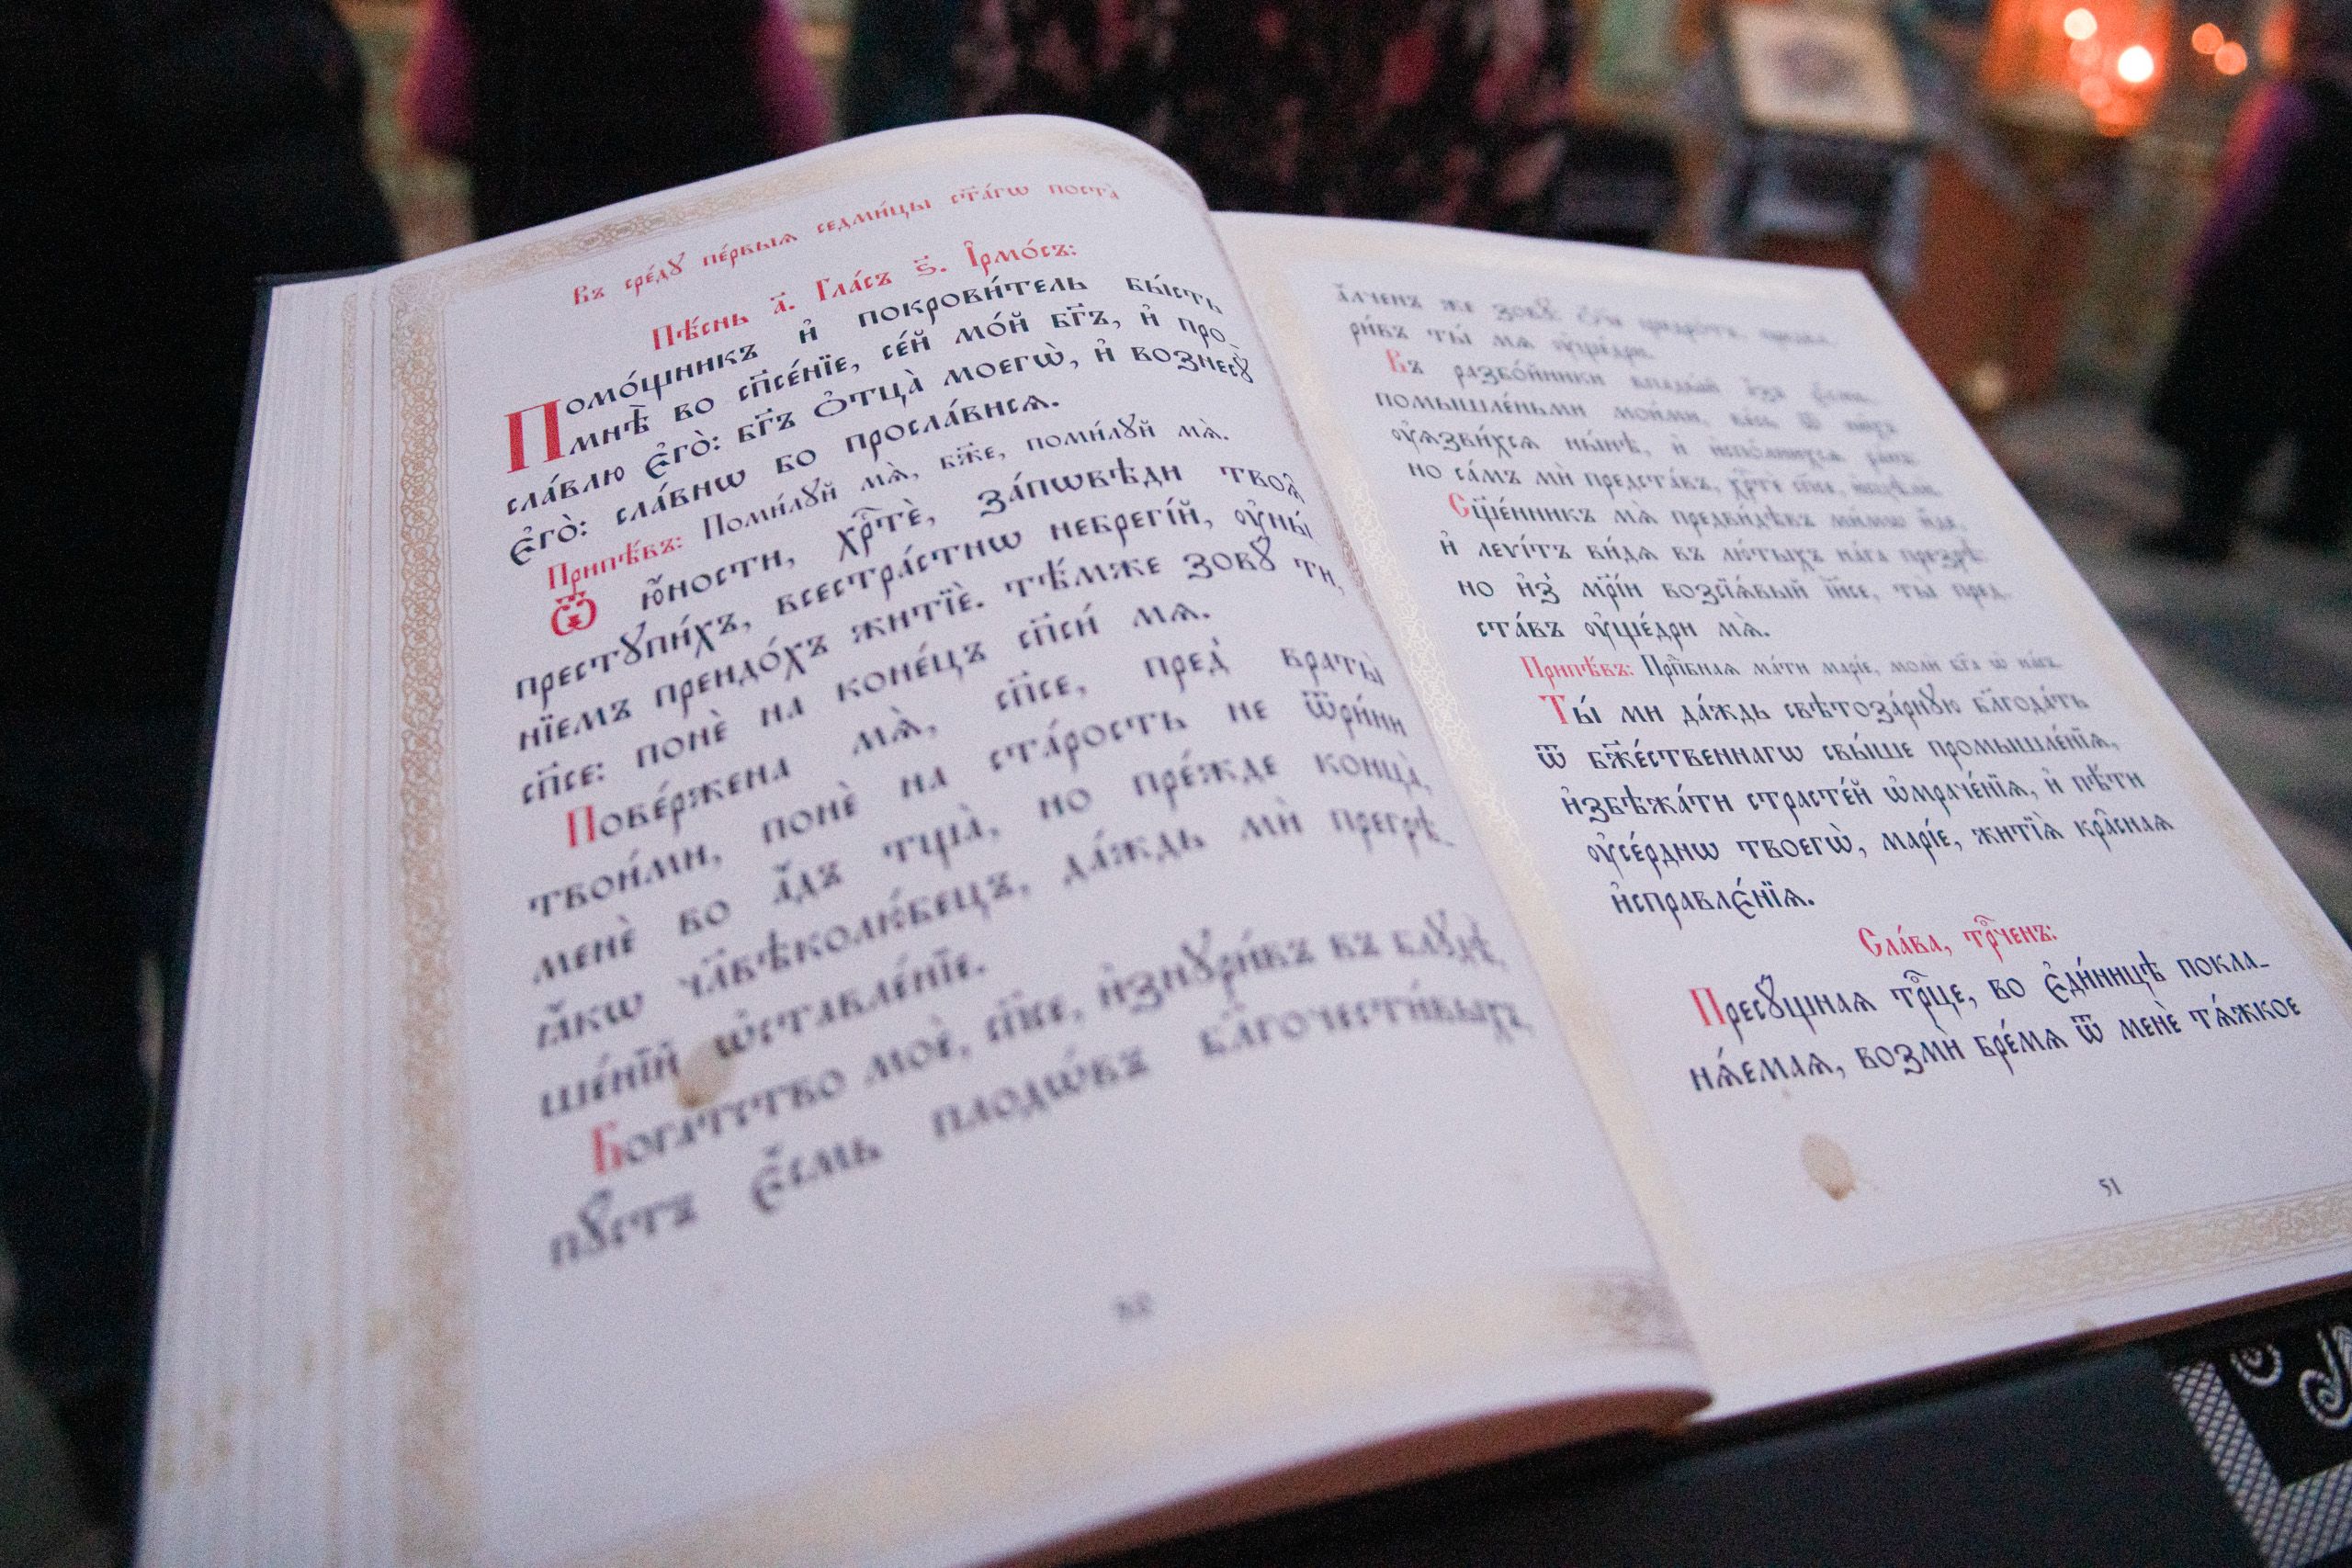 Въ сре́дꙋ пе́рвыѧ седми́цы ст҃а́гѡ поста̀
Пѣ́снь а҃. Гла́съ ѕ҃. І҆рмо́съ:
Помо́щникъ и҆ покрови́тель бы́сть
мнѣ̀ во сп҃се́нїе, се́й мо́й бг҃ъ, и҆ про
сла́влю є҆го̀: бг҃ъ ѻ҆тца̀ моегѡ̀, и҆ вознесꙋ̀
є҆го̀: сла́внѡ бо просла́висѧ.
Припѣ́въ: Поми́лꙋй мѧ̀, бж҃е, поми́лꙋй мѧ̀.
Ѿ ю҆́ности, хрⷭ҇тѐ, за́пѡвѣди твоѧ̑
престꙋпи́хъ, всестра́стнѡ небрегі́й, ᲂу҆ны́
нїемъ преидо́хъ житїѐ. тѣ́мже зовꙋ̀ ти,
сп҃се: понѐ на коне́цъ сп҃си́ мѧ.
Пове́ржена мѧ̀, сп҃се, пред̾ враты̀
твои́ми, понѐ на ста́рость не ѿри́ни
менѐ во а҆́дъ тща̀, но пре́жде конца̀,
ꙗ҆́кѡ чл҃вѣколю́бецъ, да́ждь мѝ прегрѣ
ше́нїй ѡ҆ставле́нїе.
Бога́тство моѐ, сп҃се, и҆знꙋри́въ въ блꙋдѣ̀,
пꙋ́стъ є҆́смь плодѡ́въ бл҃гочести́выхъ,
50
а҆́лченъ же зовꙋ̀:
ри́въ ты́ мѧ ᲂу҆ще́дри.
Въ разбо́йники впады́й а҆́зъ є҆́смь
помышле́ньми мои́ми, ве́сь ѿ ни́хъ
ᲂу҆ѧзви́хсѧ ны́нѣ, и҆ и҆спо́лнихсѧ ра́нъ:
но са́мъ мѝ предста́въ, хрⷭ҇тѐ сп҃се, и҆сцѣлѝ.
Сщ҃е́нникъ мѧ предви́дѣвъ ми́мѡ и҆́де,
и҆ леѵі́тъ ви́дѧ въ лю́тыхъ на́га презрѣ̀:
но и҆з̾ мр҃і́и возсїѧ́вый і҆и҃се, ты̀ пред
ста́въ ᲂу҆ще́дри мѧ̀.
Припѣ́въ: Прпⷣбнаѧ ма́ти марі́е, молѝ бг҃а ѡ҆ на́съ.
Ты́ ми да́ждь свѣтоза́рнꙋю бл҃года́ть
ѿ бж҃е́ственнагѡ свы́ше промышле́нїѧ,
и҆збѣжа́ти страсте́й ѡ҆мраче́нїѧ, и҆ пѣ́ти
ᲂу҆се́рднѡ твоегѡ̀, марі́е, житїѧ̀ кра̑снаѧ
и҆справлє́нїѧ.
Сла́ва, трⷪ҇ченъ:
Пресꙋ́щнаѧ трⷪ҇це, во є҆ди́ницѣ покла-
нѧ́емаѧ, возмѝ бре́мѧ ѿ менѐ тѧ́жкое
51